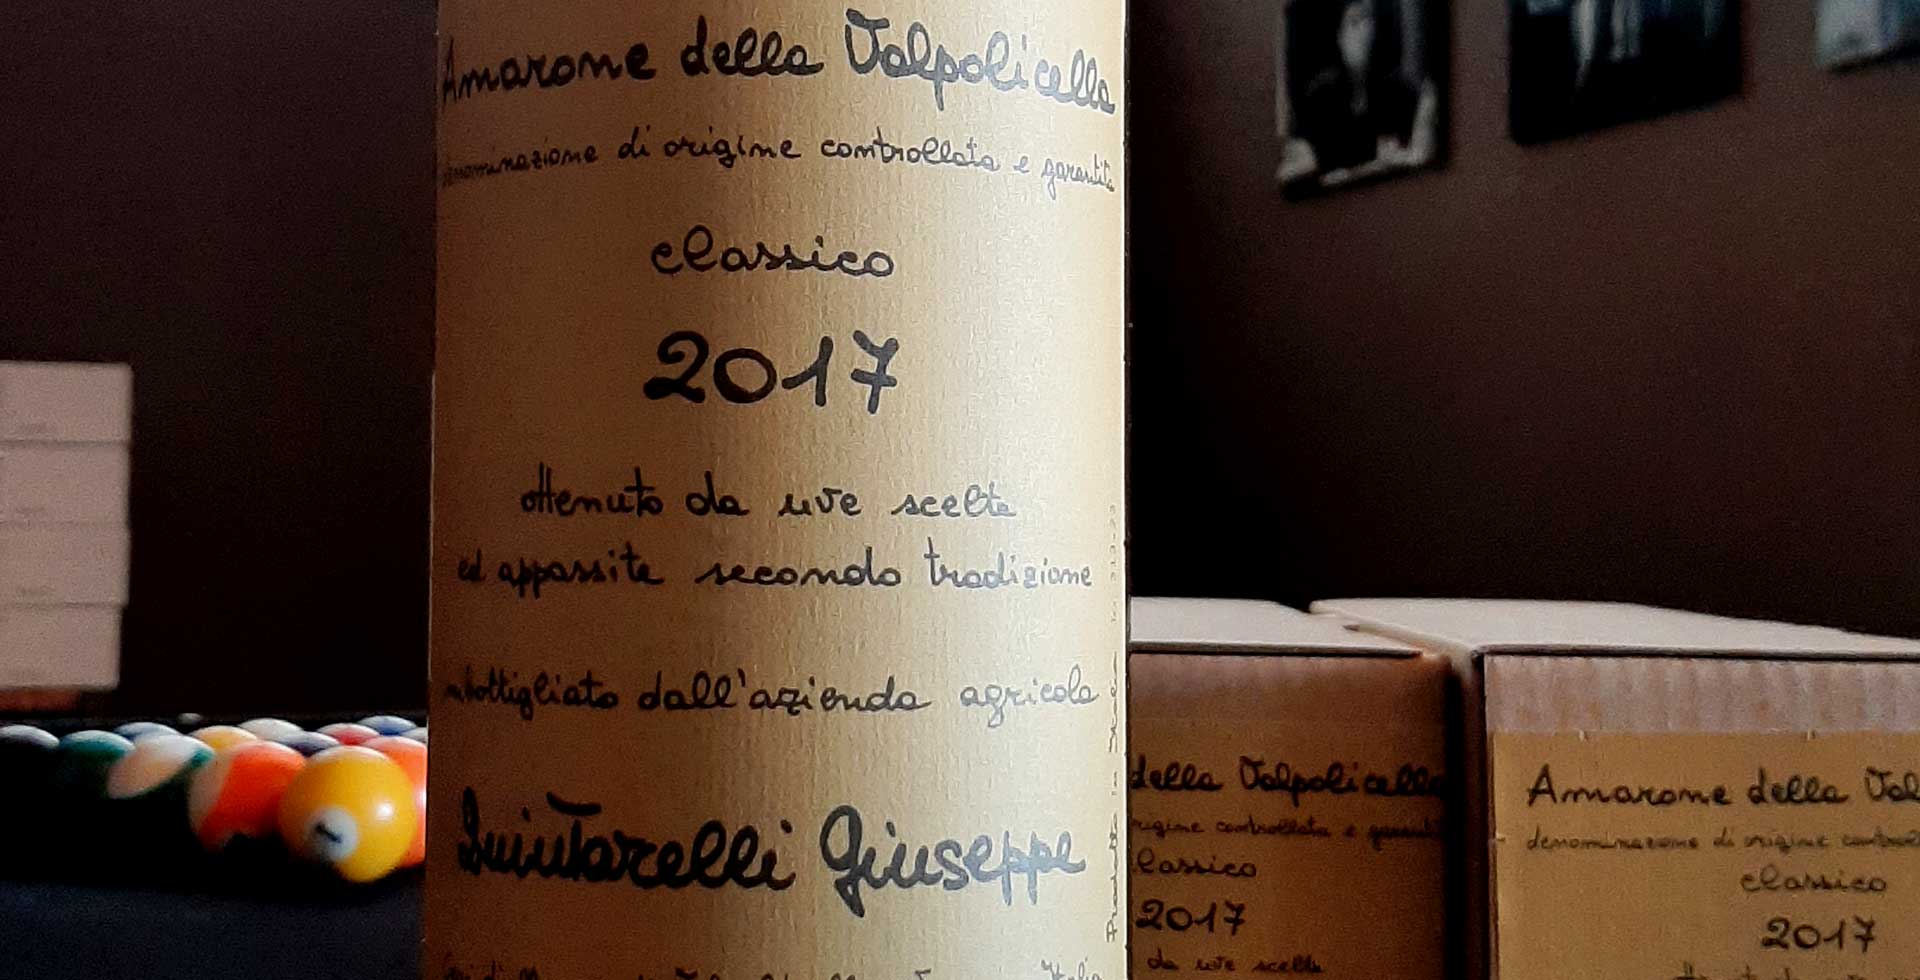 Amarone della Valpolicella
denominazione di origine controllata e garantita
classico
2017
ottenuto da uve scelte
ed appassite secondo tradizione
imbottigliato dall'azienda agricola
Quintarelli Giuseppe
Italia
Prodotto in Italia
della Valpolicella
origine controllata e garantita
classico
2017
da uve scelte
Amarone della Val
denominazione di origine control
classico
2017
1